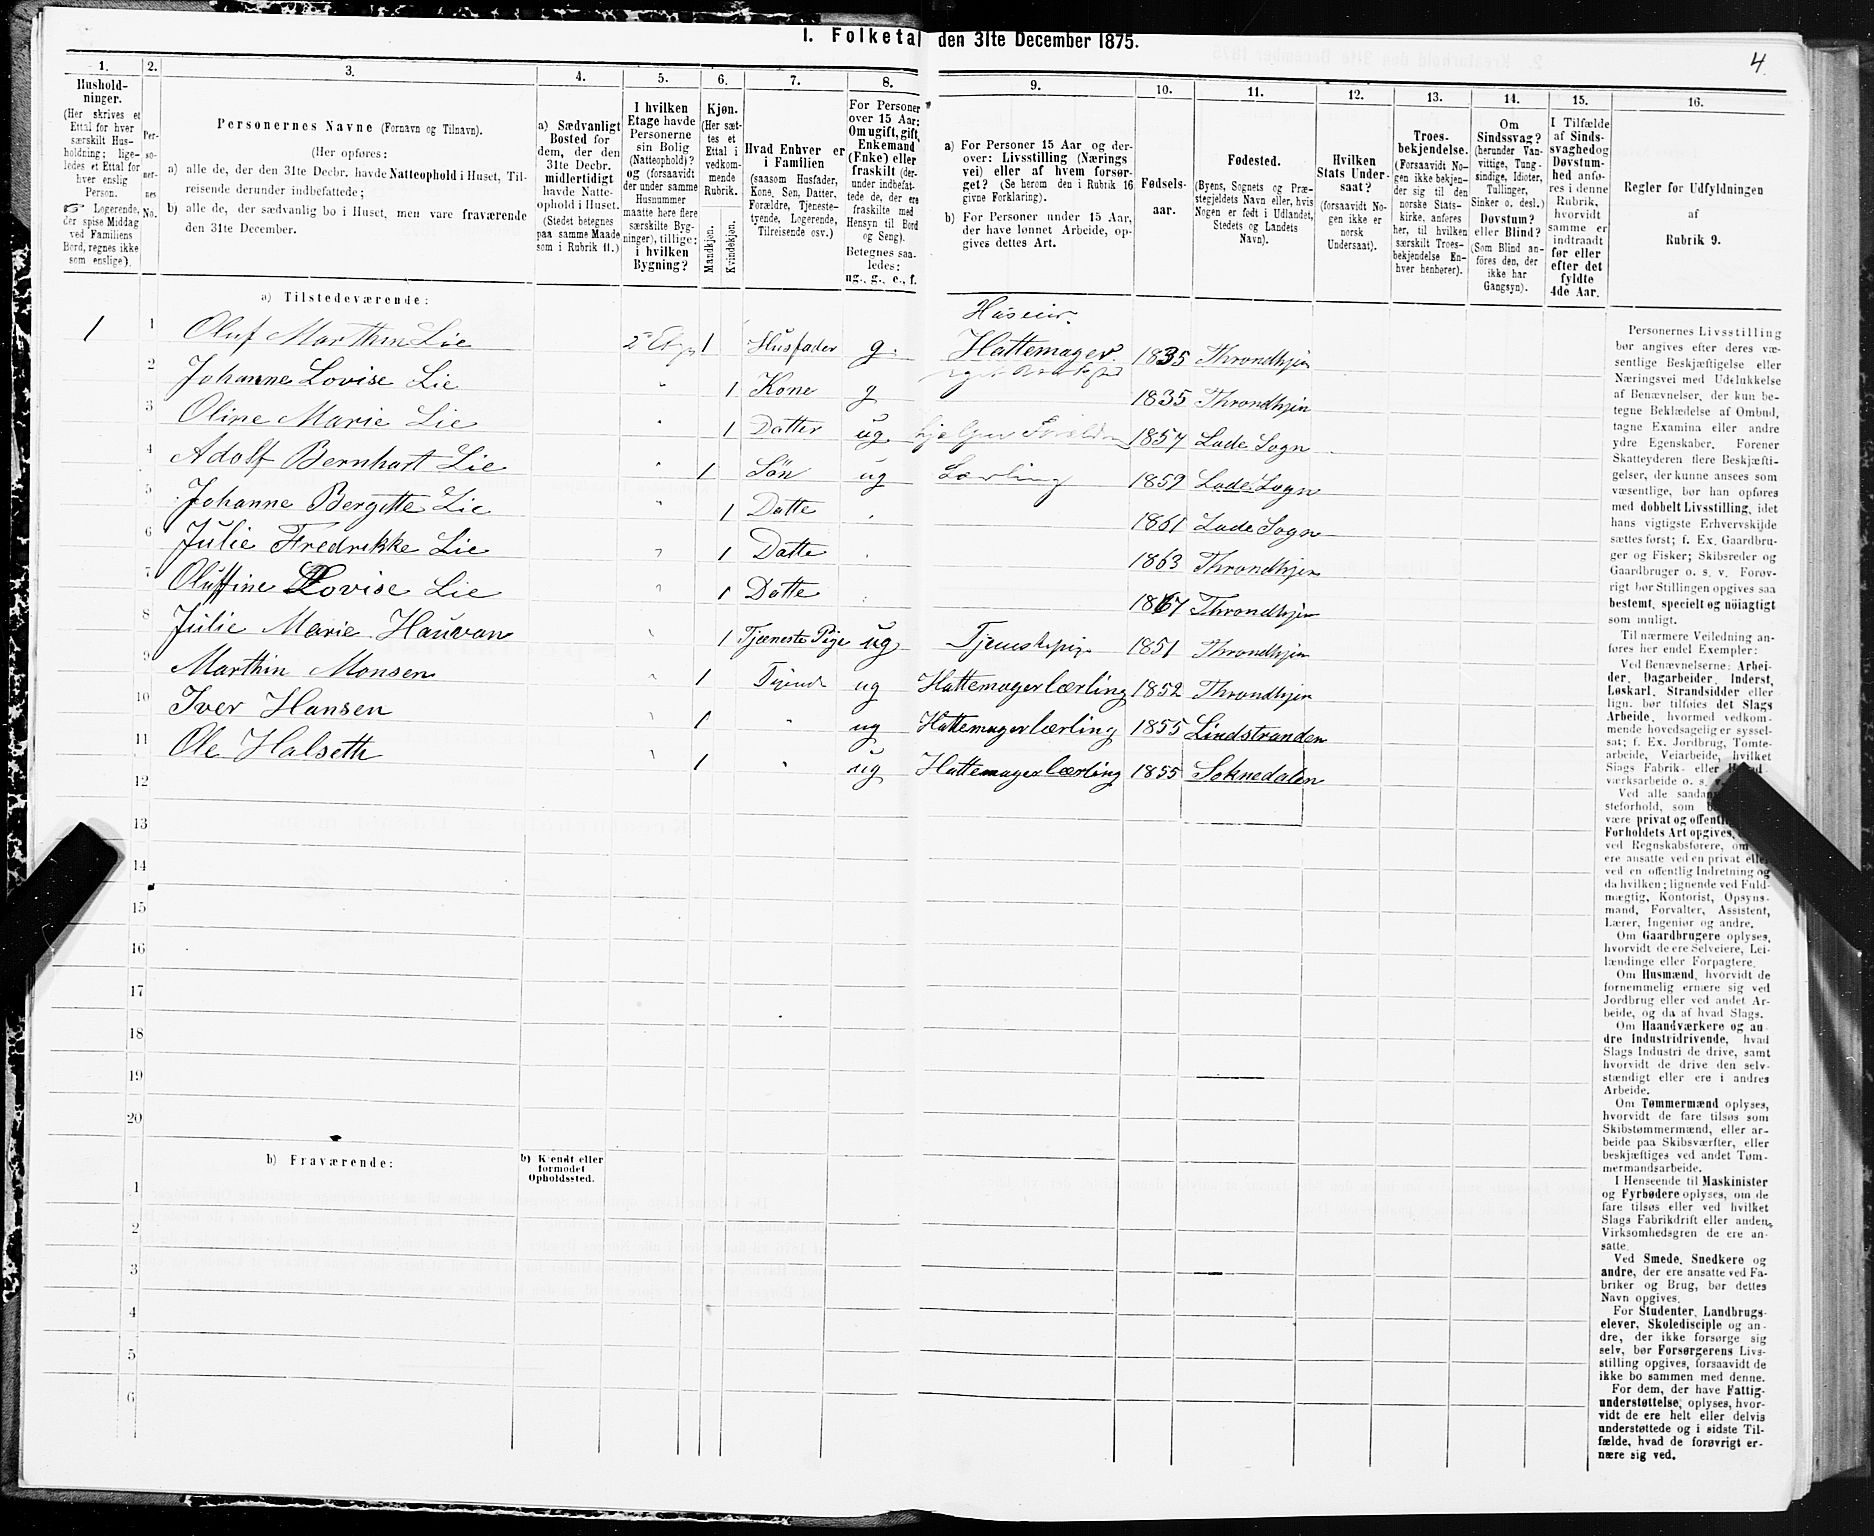 1. Folketal den 31te December 1875.
4
1.
Hushold-
ninger.
(Her skrives et
Ettal for hver
særskilt Hus-
holdning; lige-
ledes et Ettal for
hver enslig
Person.
Logerende,
der spise Middag
ved Familiens
Bord, regnes ikke
som enslige).
2.
Per-
so-
ner-
nes
No.
3.
Personernes Navne (Fornavn og Tilnavn).
(Her opføres:
a) alle de, der den 31te Decbr. havde Natteophold i Huset, Til-
reisende derunder indbefattede;
b) alle de, der sædvanlig bo i Huset, men vare fraværende
den 31te December.
4.
a) Sædvanligt
Bosted for
dem, der den
31te Decbr.
midlertidigt
havde Natte-
ophold i Huset.
(Stedet betegnes
paa samme Maade
som i Rubrik 11.)
5.
I hvilken
Etage havde
Personerne
sin Bolig
(Natteophold)?
og (forsaavidt
der under samme
Husnummer
maatte høre flere
særskilte Byg-
ninger), tillige:
i hvilken
Bygning?
6.
Kjøn.
(Her sæt-
tes et
Ettal i
vedkom-
mende
Rubrik.
Mandkjøn.
Kvindekjøn.
7.
Hvad Enhver er
i Familien
(saasom Husfader,
Kone, Søn, Datter,
Forældre, Tjeneste-
tyende, Logerende,
Tilreisende osv.)
8.
For Personer
over 15 Aar:
Om ugift, gift,
Enkemand
(Enke) eller
fraskilt (der-
under indbefat-
tede de, der ere
fraskilte med
Hensyn til Bord
og Seng).
Betegnes saa-
ledes:
ug., g., e., f.
9.
a) For Personer 15 Aar og der-
over: Livsstilling (Nærings
vei) eller af hvem forsør-
get? (Se herom den i Rubrik 16
givne Forklaring).
b) For Personer under 15 Aar,
der have lønnet Arbeide, op-
gives dettes Art.
10.
Fødsels-
aar.
11.
Fødested.
(Byens, Sognets og Præ-
stegjeldets Navn eller, hvis
Nogen er født i Udlandet,
Stedets og Landets
Navn).
12.
Hvilken
Stats Under-
saat?
(forsaavidt No-
gen ikke er
norsk
Undersaat).
13.
Troes-
bekjendelse.
(Forsaavidt No-
gen ikke bekjen-
der sig til den
norske Stats-
kirke, anføres
her, til hvilken
særskilt Troes-
bekjendelse En-
hver henhører).
14.
Om
Sindssvag?
(herunder Van-
vittige, Tung-
sindige, Idioter,
Tullinger,
Sinker o. desl.)
Døvstum?
eller Blind?
(Som Blind an-
føres den, der
ikke har
Gangsyn).
15.
I Tilfælde
af Sinds-
svaghed og
Døvstum-
hed anfø-
res i denne
Rubrik,
hvorvidt
samme er
indtraadt
før eller
efter det
fyldte
4de Aar.
16.
Regler for Udfyldningen
af
Rubrik 9.
a) Tilstedeværende:
Huseier.
1 1 Oluf Marthin Lie 2 Etage 1 Husfader g. Hattemager 1835 Throndhjem
2 Johanne Lovise Lie " 1 Kone g 1835 Throndhjem
3 Oline Marie Lie " 1 Datter ug hjelper Forældre 1857 Lade Sogn
4 Adolf Bernhart Lie " 1 Sön ug Lærling 1859 Lade Sogn
5 Johanne Bergitte Lie 1 Datte 1861 Lade Sogn
6 Julie Fredrikke Lie " 1 Datte 1863 Throndhjem
7 Oluffine Lovise Lie " 1 Datte 1867 Throndhjem
8 Julie Marie Hauvan " 1 Tjæneste Pige ug Tjenestepige 1851 Throndhjem
9 Marthin Monsen " 1 Tyende ug Hattemagerlærling 1852 Throndhjem
10 Iver Hansen " 1 " ug Hattemagerlærling 1855 Lindstranden
11 Ole Halseth " 1 " ug Hattemagerlærling 1855 Soknedalen
12
13
14
15
16
17
18
19
20
b) Fraværende:
b) Kjendt eller
formodet
Opholdssted.
1
2
3
4
5
6
Personernes Livsstilling
bør angives efter deres væ-
sentlige Beskjæftigelse eller
Næringsvei med Udelukkelse
af Benævnelser, der kun be-
tegne Beklædelse af Ombud,
tagne Examina eller andre
ydre Egenskaber. Forener
Skatteyderen flere Beskjæfti-
gelser, der kunne ansees som
væsentlige, bør han opføres
med dobbelt Livsstilling, idet
hans vigtigste Erhvervskilde
sættes først; f. Ex. Gaardbru-
ger og Fisker; Skibsreder og
Gaardbruger o. s. v. Forøv-
rigt bør Stillingen opgives saa
bestemt, specielt og nøiagtigt
som muligt.
Til nærmere Veiledning an-
føres her endel Exempler:
Ved Benævnelserne: Arbei-
der, Dagarbeider, Inderst,
Løskarl, Strandsidder eller
lign. bør tilføies det Slags
Arbeide, hvormed vedkom-
mende hovedsagelig er syssel-
sat; f. Ex. Jordbrug, Tomte-
arbeide, Veiarbeide, hvilket
Slags Fabrik- eller Haand-
værksarbeide o. s. v.
Ved alle saadan
steforhold, som
være privat og offentlig
Forholdets Art opgives,
ved Regnskabsførere, om
ere ansatte ved en privat eller
ved en offentlig Indretning og
da hvilken; lignende ved Fuld-
mægtig, Kontorist, Opsyns-
mand, Forvalter, Assistent,
Lærer, Ingeniør og andre.
Om Gaardbrugere oplyses,
hvorvidt de ere Selveiere, Lei-
lændinge eller Forpagtere.
Om Husmænd, hvorvidt de
fornemmelig ernære sig ved
Jordbrug eller ved andet Ar-
beide, og da af hvad Slags.
Om Haandværkere og an-
dre Industridrivende, hvad
Slags Industri de drive, samt
hvorvidt de drive den selv-
stændigt eller ere i andres
Arbeide.
Om Tømmermænd oplyses,
hvorvidt de fare tilsøs som
Skibstømmermænd, eller ar-
beide paa Skibsværfter, eller
beskjæftiges ved andet Tøm-
mermandsarbeide.
I Henseende til Maskinister
og Fyrbødere oplyses, om de
fare tilsøs eller ved hvilket
Slags Fabrikdrift eller anden
Virksomhedsgren de ere an-
satte.
Ved Smede, Snedkere og
andre, der ere ansatte ved Fa-
briker og Brug, bør dettes
Navn opgives.
For Studenter, Landbrugs-
elever, Skoledisciple og an-
dre, der ikke forsørge sig
selv, bør Forsørgerens Livs-
stilling opgives, forsaavidt de
ikke bo sammen med denne.
For dem, der have Fattig-
understøttelse, oplyses, hvor-
vidt de ere helt eller delvis
understøttede og i sidste Til-
fælde, hvad de forøvrigt er-
nære sig ved.